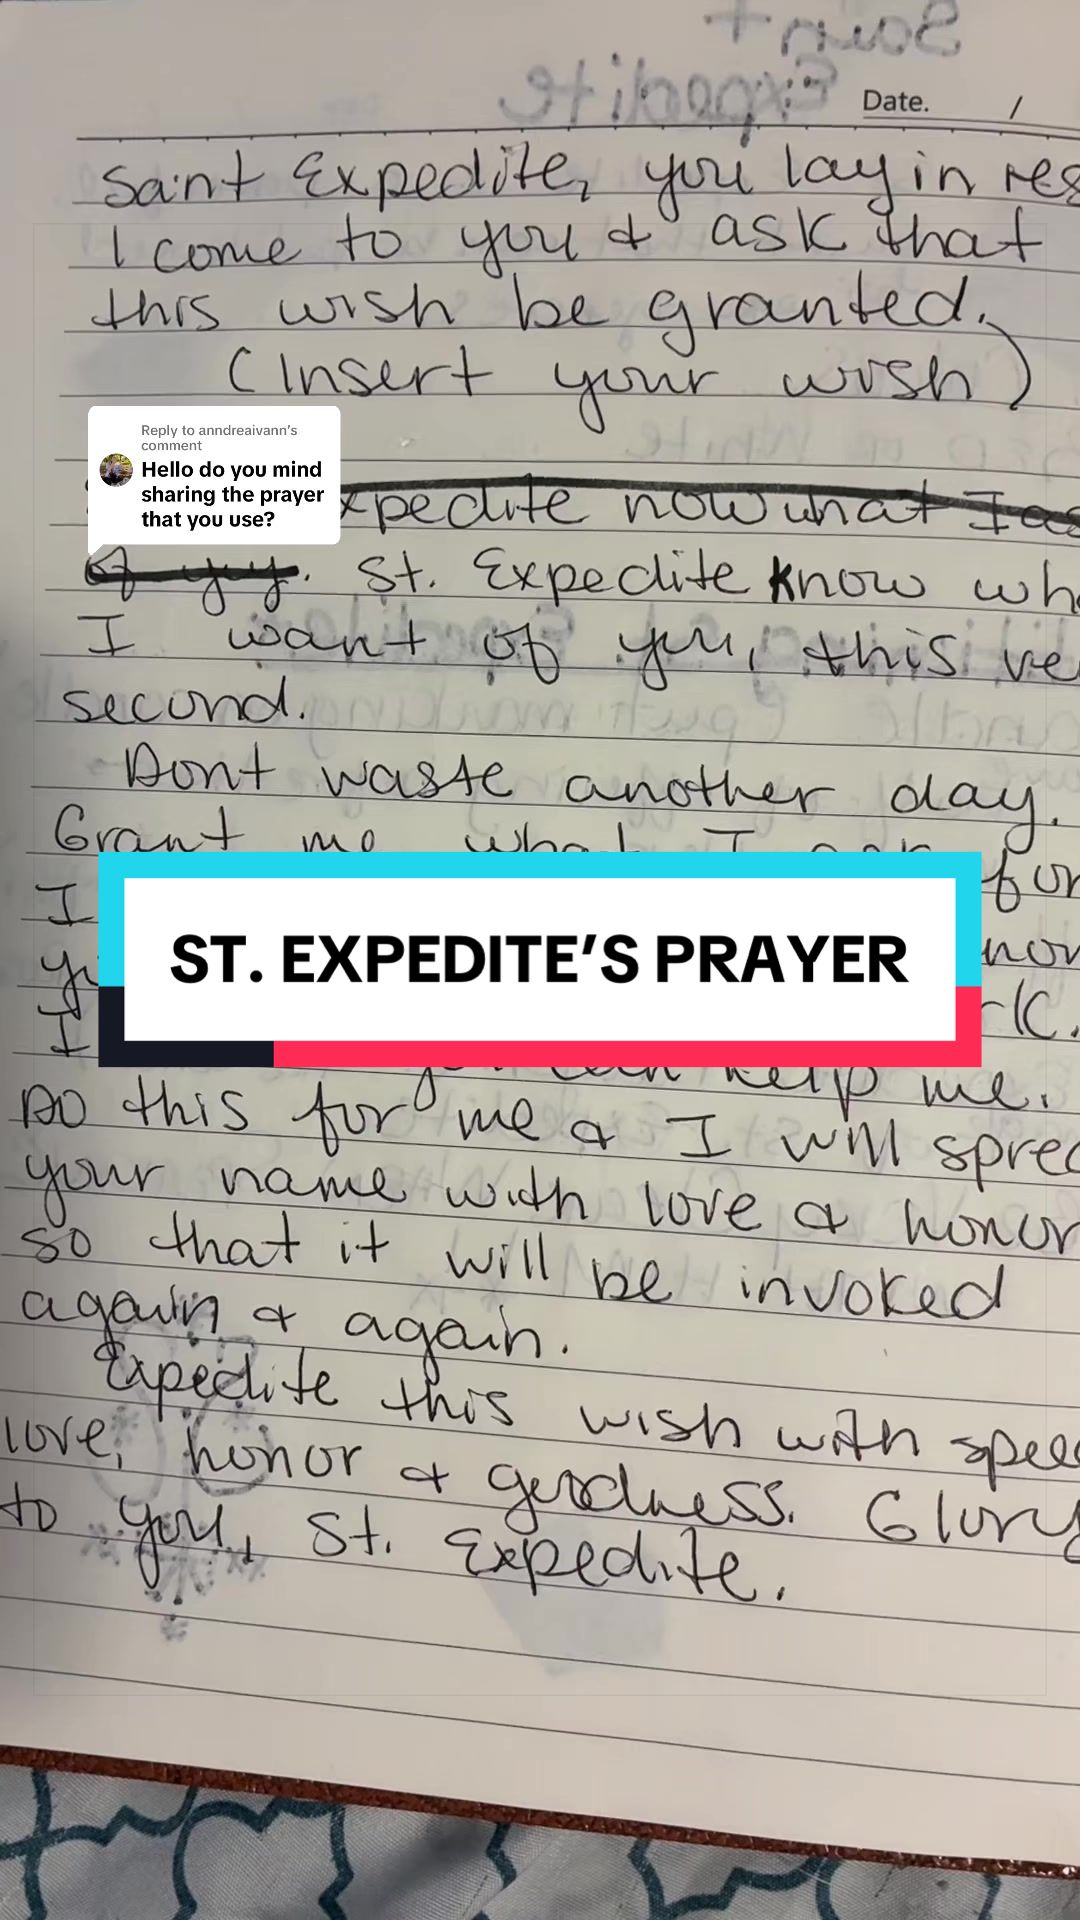 Date. /
Saint Expedite, you lay in
I come to you & ask that
this wish be granted.
(Insert your wish)
Reply to anndreaivann's
comment
Hello do you mind
sharing the prayer
that you use?
now what I
of you. St. Expedite know
I want of you, this
second.
Dont waste another day.
Grant me what I ask for
I
ST. EXPEDITE'S PRAYER
I
you can help me.
Do this for me & I will
your name with love & honor
so that it will be invoked
again & again.
Expedite this wish with
love, honor & goodness. Glory
to you, St. Expedite.